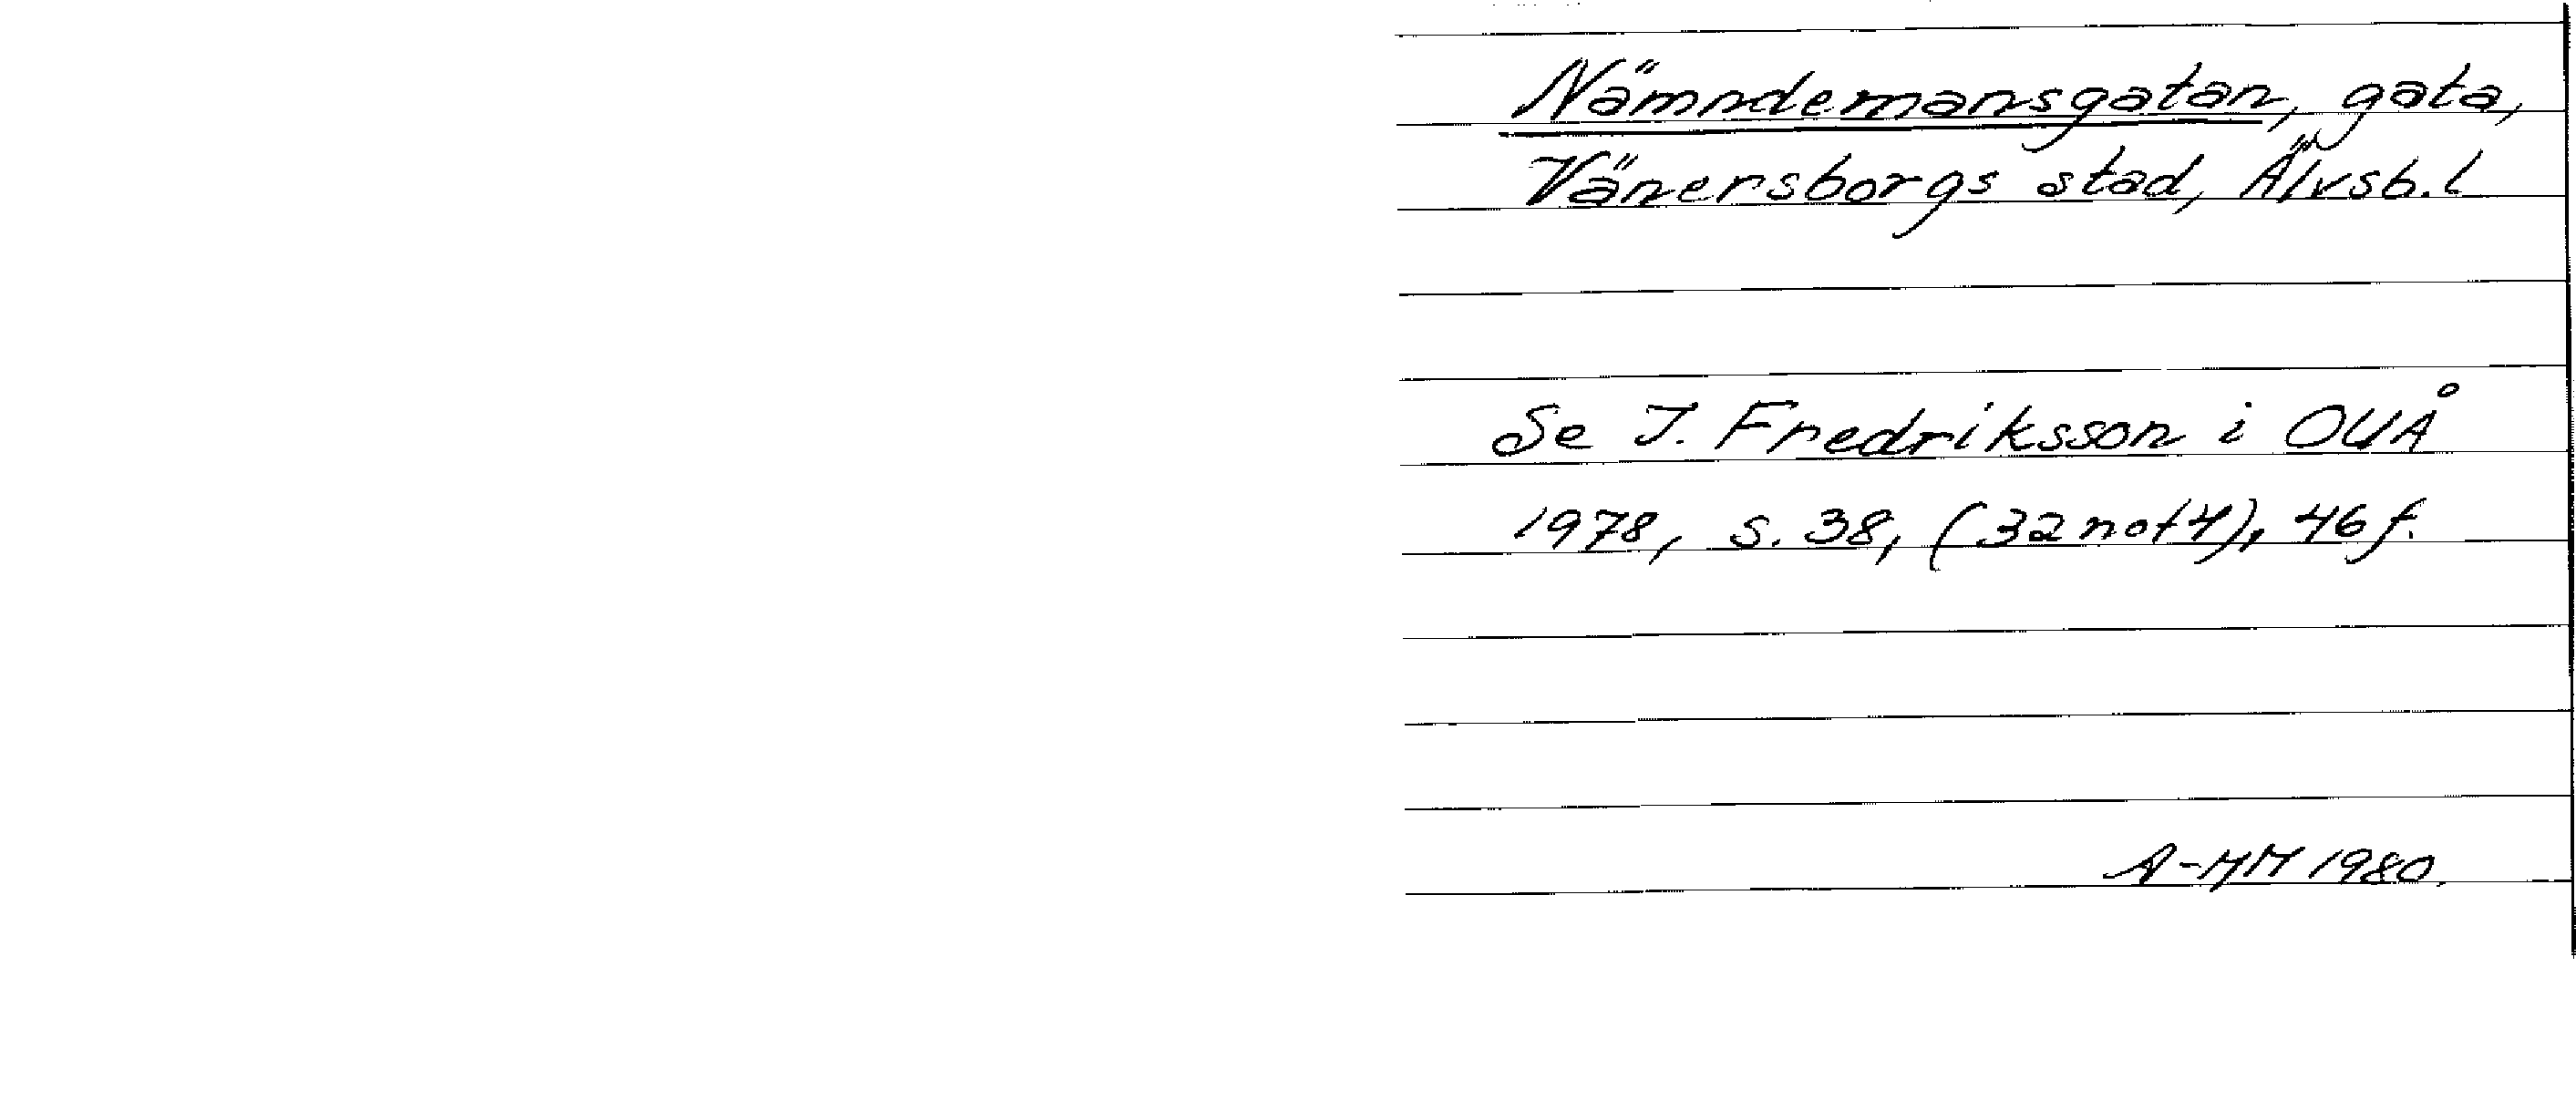 Nämndemansgatan, gata,
Vänersborgs stad, Älvsb. l
Se I. Fredriksson i OUÅ
1978, s. 38, (32 not 4), 46 f.
A-MM 1980.